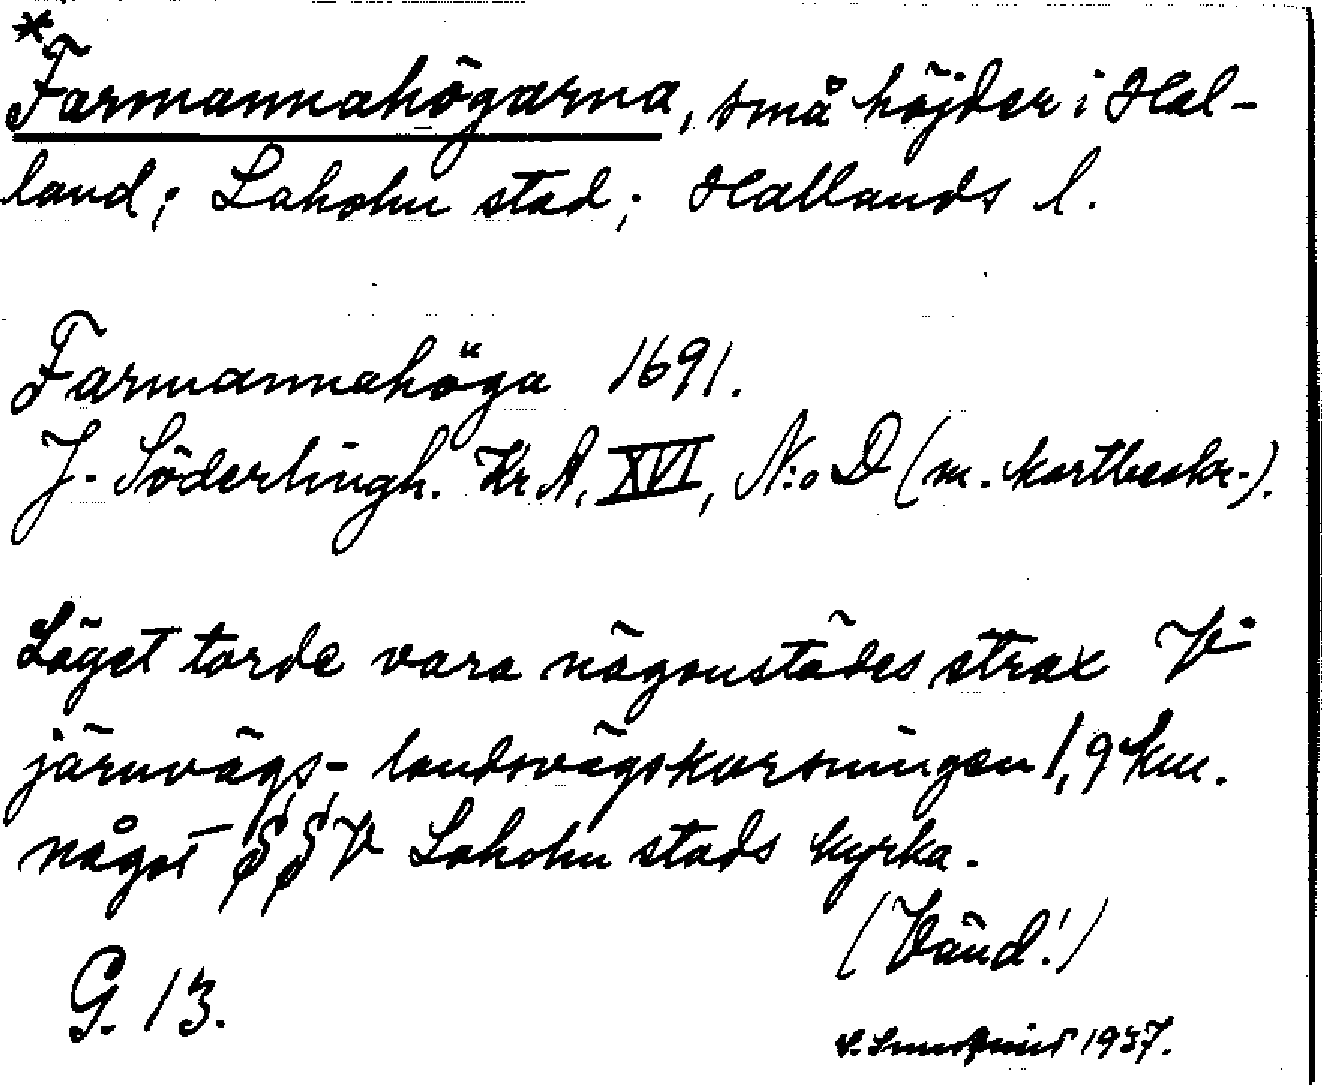 *
Farmannahögarna, små höjder i Hal-
land; Laholm stad; Hallands l.
Farmannahöga 1691.
J. Söderlingh. Kr A. XVI, N:o D (m. kartbeskr.).
Läget torde vara någonstädes strax V
järnvägs-landsvägskorsningen 1,9 km.
något SSV Laholm stads kyrka.
(Vänd!)
G. 13.
1937.